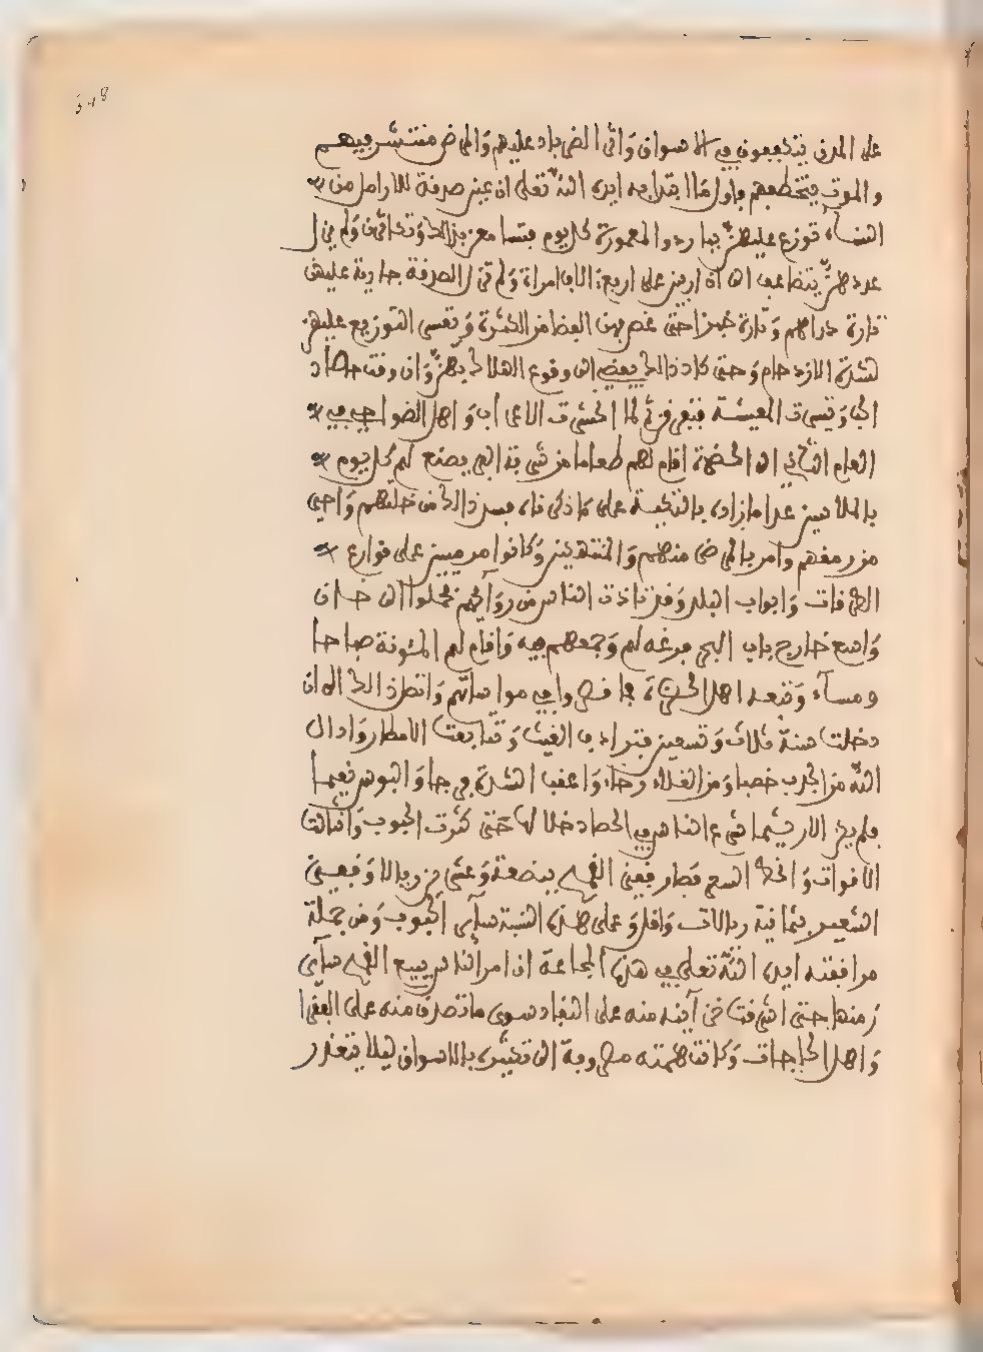 548
على المدن يتكففون في الاسواق واثر الضر باد عليهم والمرض منتشر فيهم
والموت يتخطفهم فاول ما ابتدا به ايده الله تعلى ان عين صدقة للارامل من
النساء توزع عليهن بباردو المعمورة كل يوم فتسامعن بذالك وتكاثرن ولم يزل
عددهن يتضاعف الى ان اربين على اربعة الاف امراة ولم تزل الصدقة جارية عليهن
تارة دراهم وتارة خبزا حتى غص بهن الفضا من الكثرة وتعسر التوزيع عليهن
لشدة الازدحام وحتى كاد ذالك يفضي الى وقوع الهلاك بهن وان وقت حصاد
وتيسرت المعيشة فتفرقن لما انحشرت الاعراب واهل الضواحي في
العام الثاني الى الحضرة اقام لهم طعاما من شربة البر يصنع لهم كل يوم
بالملاسين عدا ما زاده بالتكية على ما ذكرناه فسد ذالك من خلتهم واحيى
من رمقهم وامر بالمرضى منهم والمنتهكين وكانوا مرميين على قوارع
الطرقات وابواب البلد وقد تاذت الناس من روائحهم فحملوا الى خان
واسع خارج باب البحر فرغه لهم وجمعهم فيه واقام لهم المئونة صباحا
ومساء وتبعه اهل الحضرة فما قصروا في مواساتهم واتصل ذالك الى ان
دخلت سنة ثلاث وتسعين فتدارك الغيث وتتابعت الامطار وادال
الله من الجدب خصبا ومن الغلاء رخاء واعقب الشدة فرجا والبوس نعيما
فلم يك الا ريثما شرع الناس في الحصاد خلالها حتى كثرت الحبوب وانثالت
الاقوات وانحط السعر فصار قفيز القمح ببضعة وعشرين ريالا وقفيز
الشعير بثمانية ريالات واقل وعلى هذه النسبة سائر الحبوب ومن جملة
مرافقه ايده الله تعلى في هذه المجاعة ان امر الناس ببيع القمح سائر
زمنها حتى اشرفت خزائنه منه على النفاد سوى ما تصدق منه على الفقرا
واهل الحاجات وكانت همته مصروفة الى تكثيره بالاسواق ليلا يتعذر